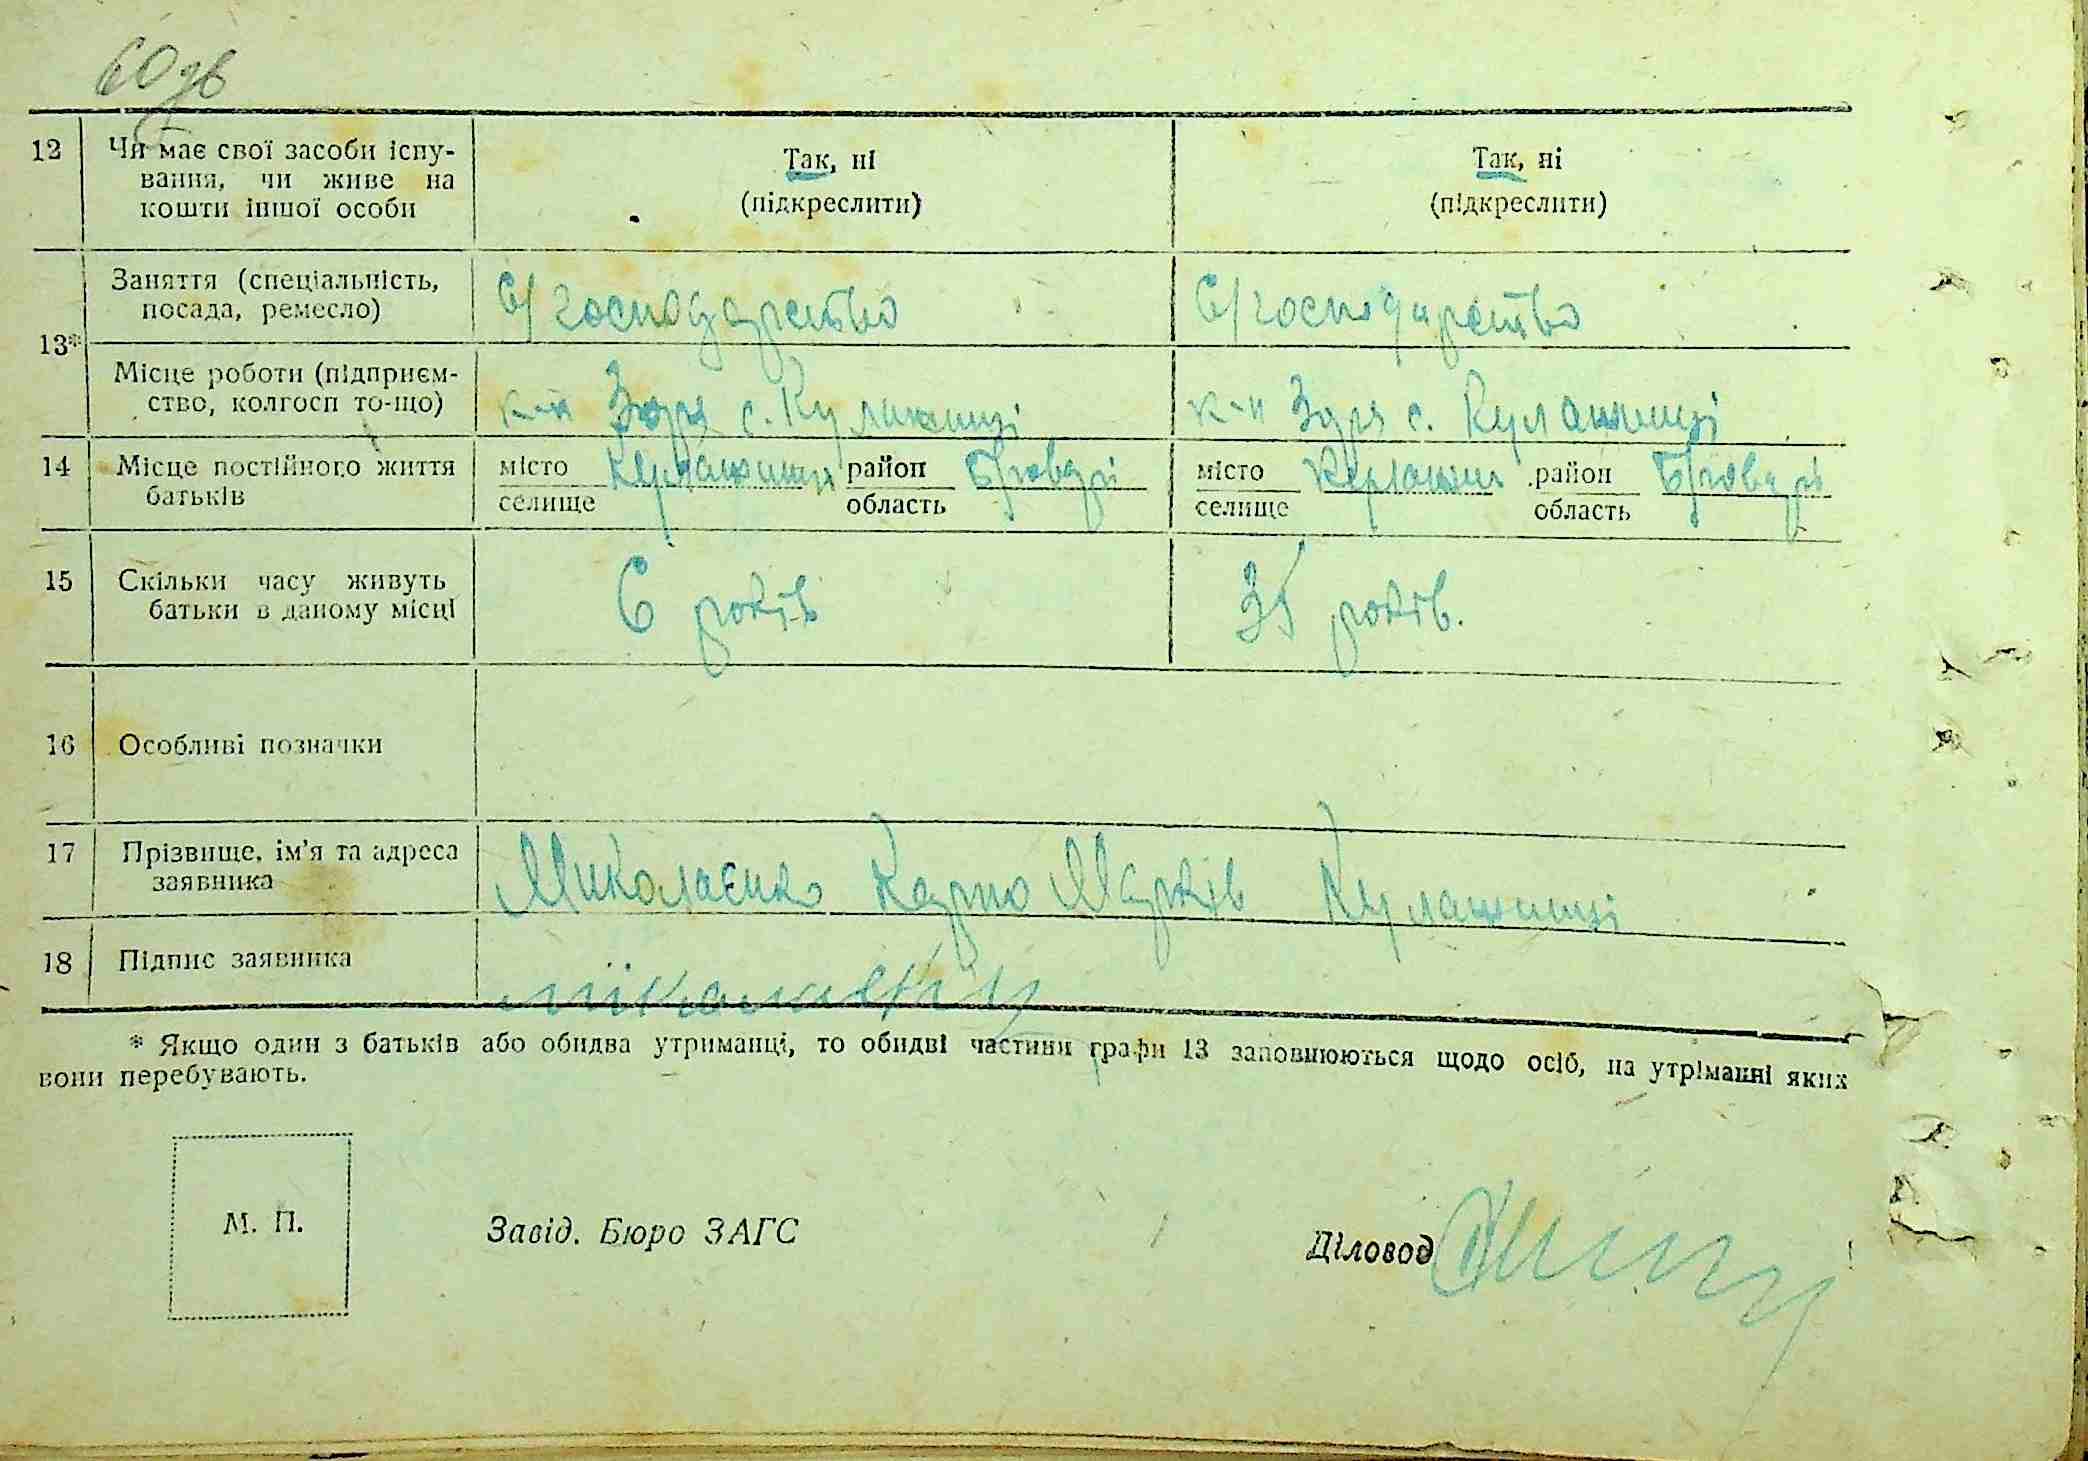 60 зв
12 Чи має свої засоби існу-
вання, чи живе на
кошти іншої особи
Так, ні
(підкреслити)
Так, ні
(підкреслити)
13*
Заняття (спеціальність,
посада, ремесло)
С/господарство
С/господарство
Місце роботи (підприєм-
ство, колгосп то-що)
к-п Зоря с. Кулажинці
к-п Зоря с. Кулажинці
14 Місце постійного життя
батьків
місто
селище
Кулажинці
район
область
місто
селище
Кулажинці
район
область
15 Скільки часу живуть
батьки в даному місці
6 років
35 років.
16 Особливі позначки
17 Прізвище, ім'я та адреса
заявника
Миколаєнко Карпо Марків Кулажинці
18 Підпис заявника
* Якщо один з батьків або обидва утриманці, то обидві частини графи 13 заповнюються щодо осіб, на утріманні яких
вони перебувають.
М. П.
Завід. Бюро ЗАГС
Діловод